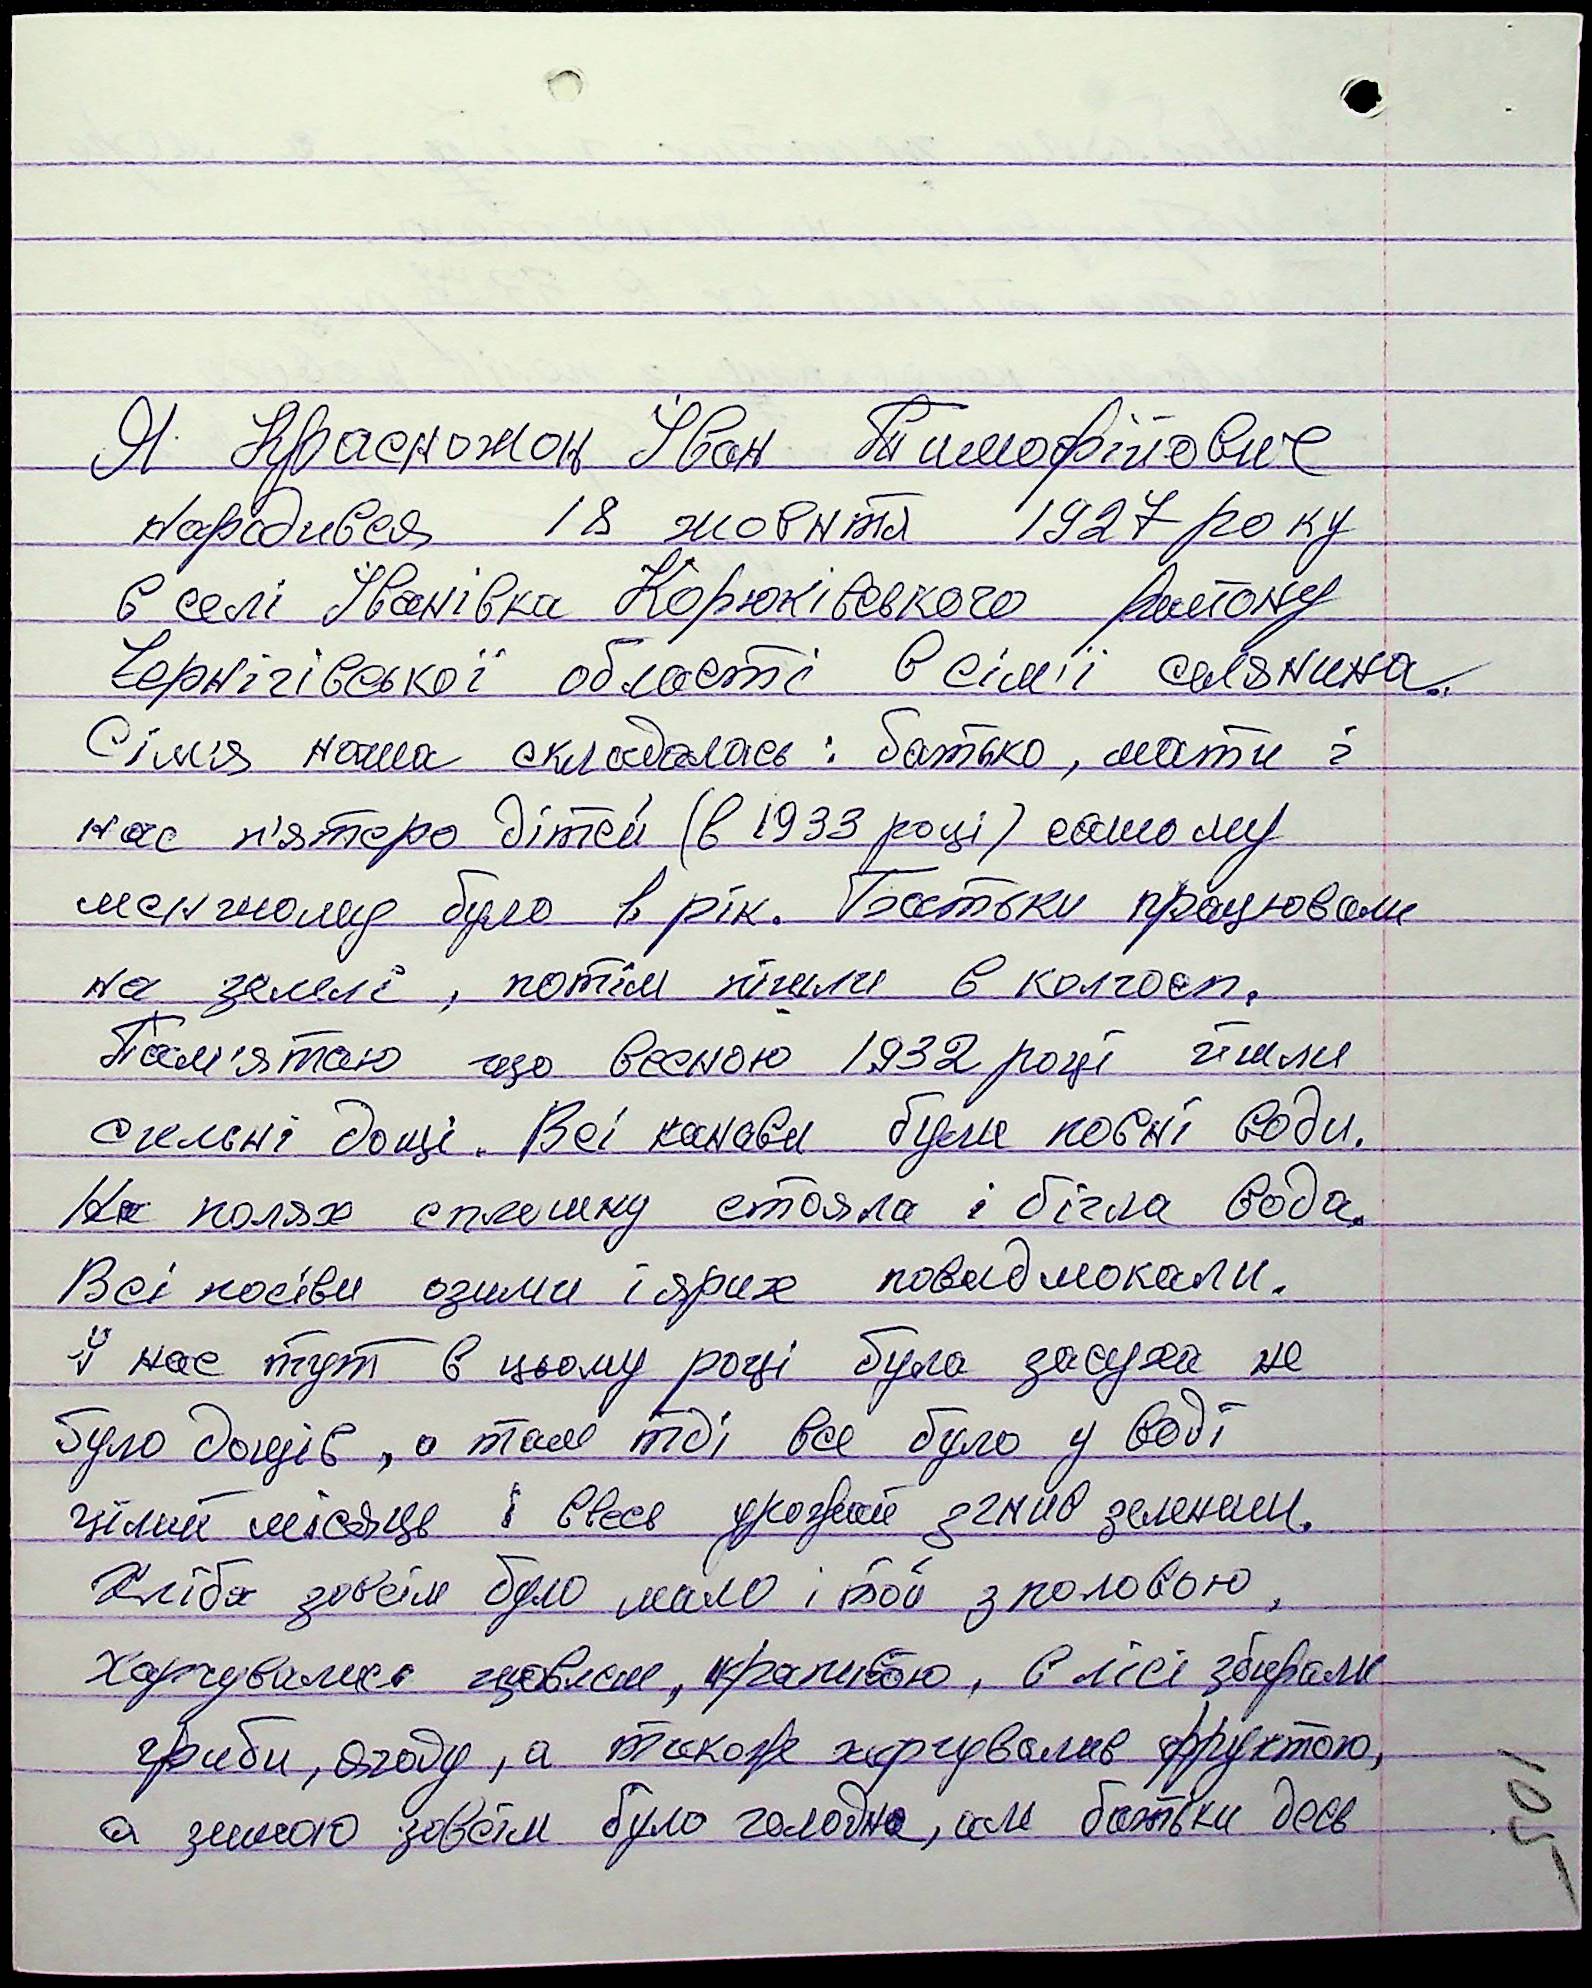 Я Красножон Іван Тимофійович
народився 18 жовтня 1927 року
в селі Іванівка Корюківського району
Чернігівської області в сім'ї селянина.
Сім'я наша складалась: батько, мати і
нас п'ятеро дітей (в 1933 році) самому
меншому було 1 рік. Батьки працювали
на землі, потім пішли в колгосп.
Пам'ятаю що весною 1932 році йшли
сильні дощі. Всі канави були повні води.
На полях сплошну стояла і бігла вода.
Всі посіви озими і ярих повидмокали.
У нас тут в цьому році була засуха не
було дощів, а там тді все було у воді
цілий місяць і ввесь урожай згнив зеленим.
Хліба зовсім було мало і той з половою,
харчувались щавлем, крапивою, в лісі збирали
гриби, ягоду, а також харчувались фруктою,
а зимою зовсім було голодно, али батьки десь
105